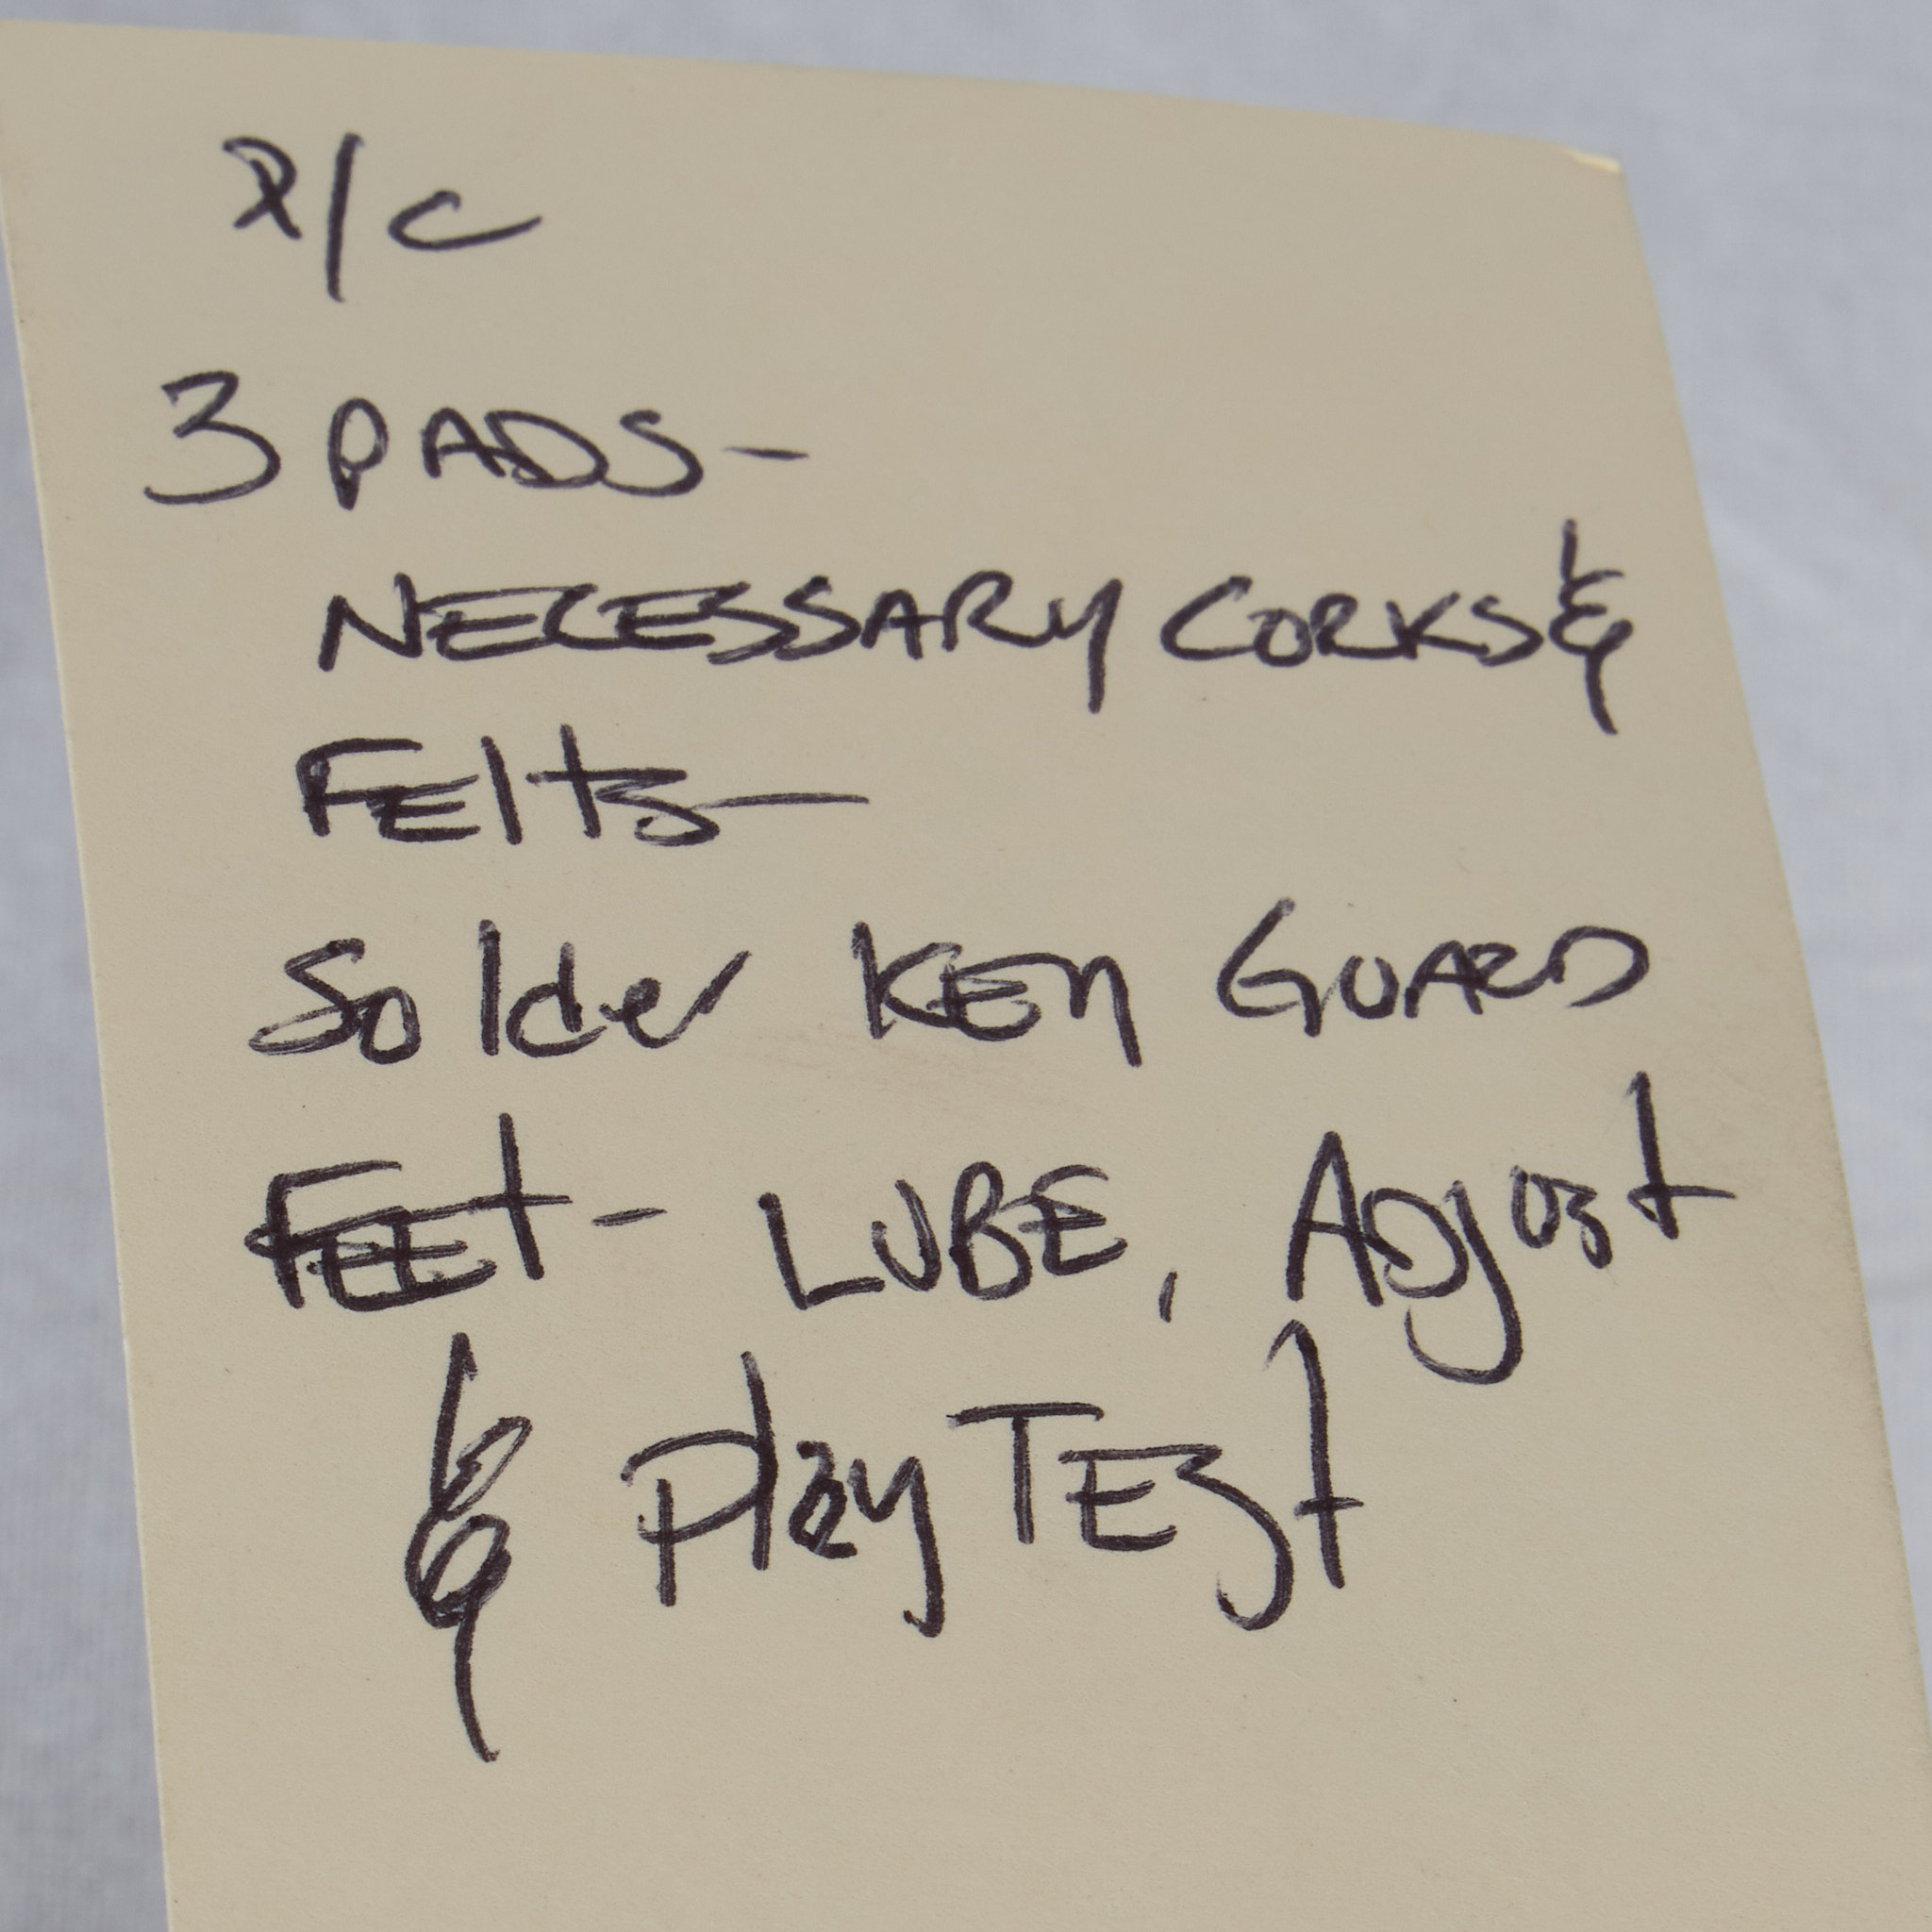 R/C
3 PADS-
NECESSARY CORKS &
FElts-
Solder KEy GUARD
FEEt- LUBE, ADJust
& Play TEst